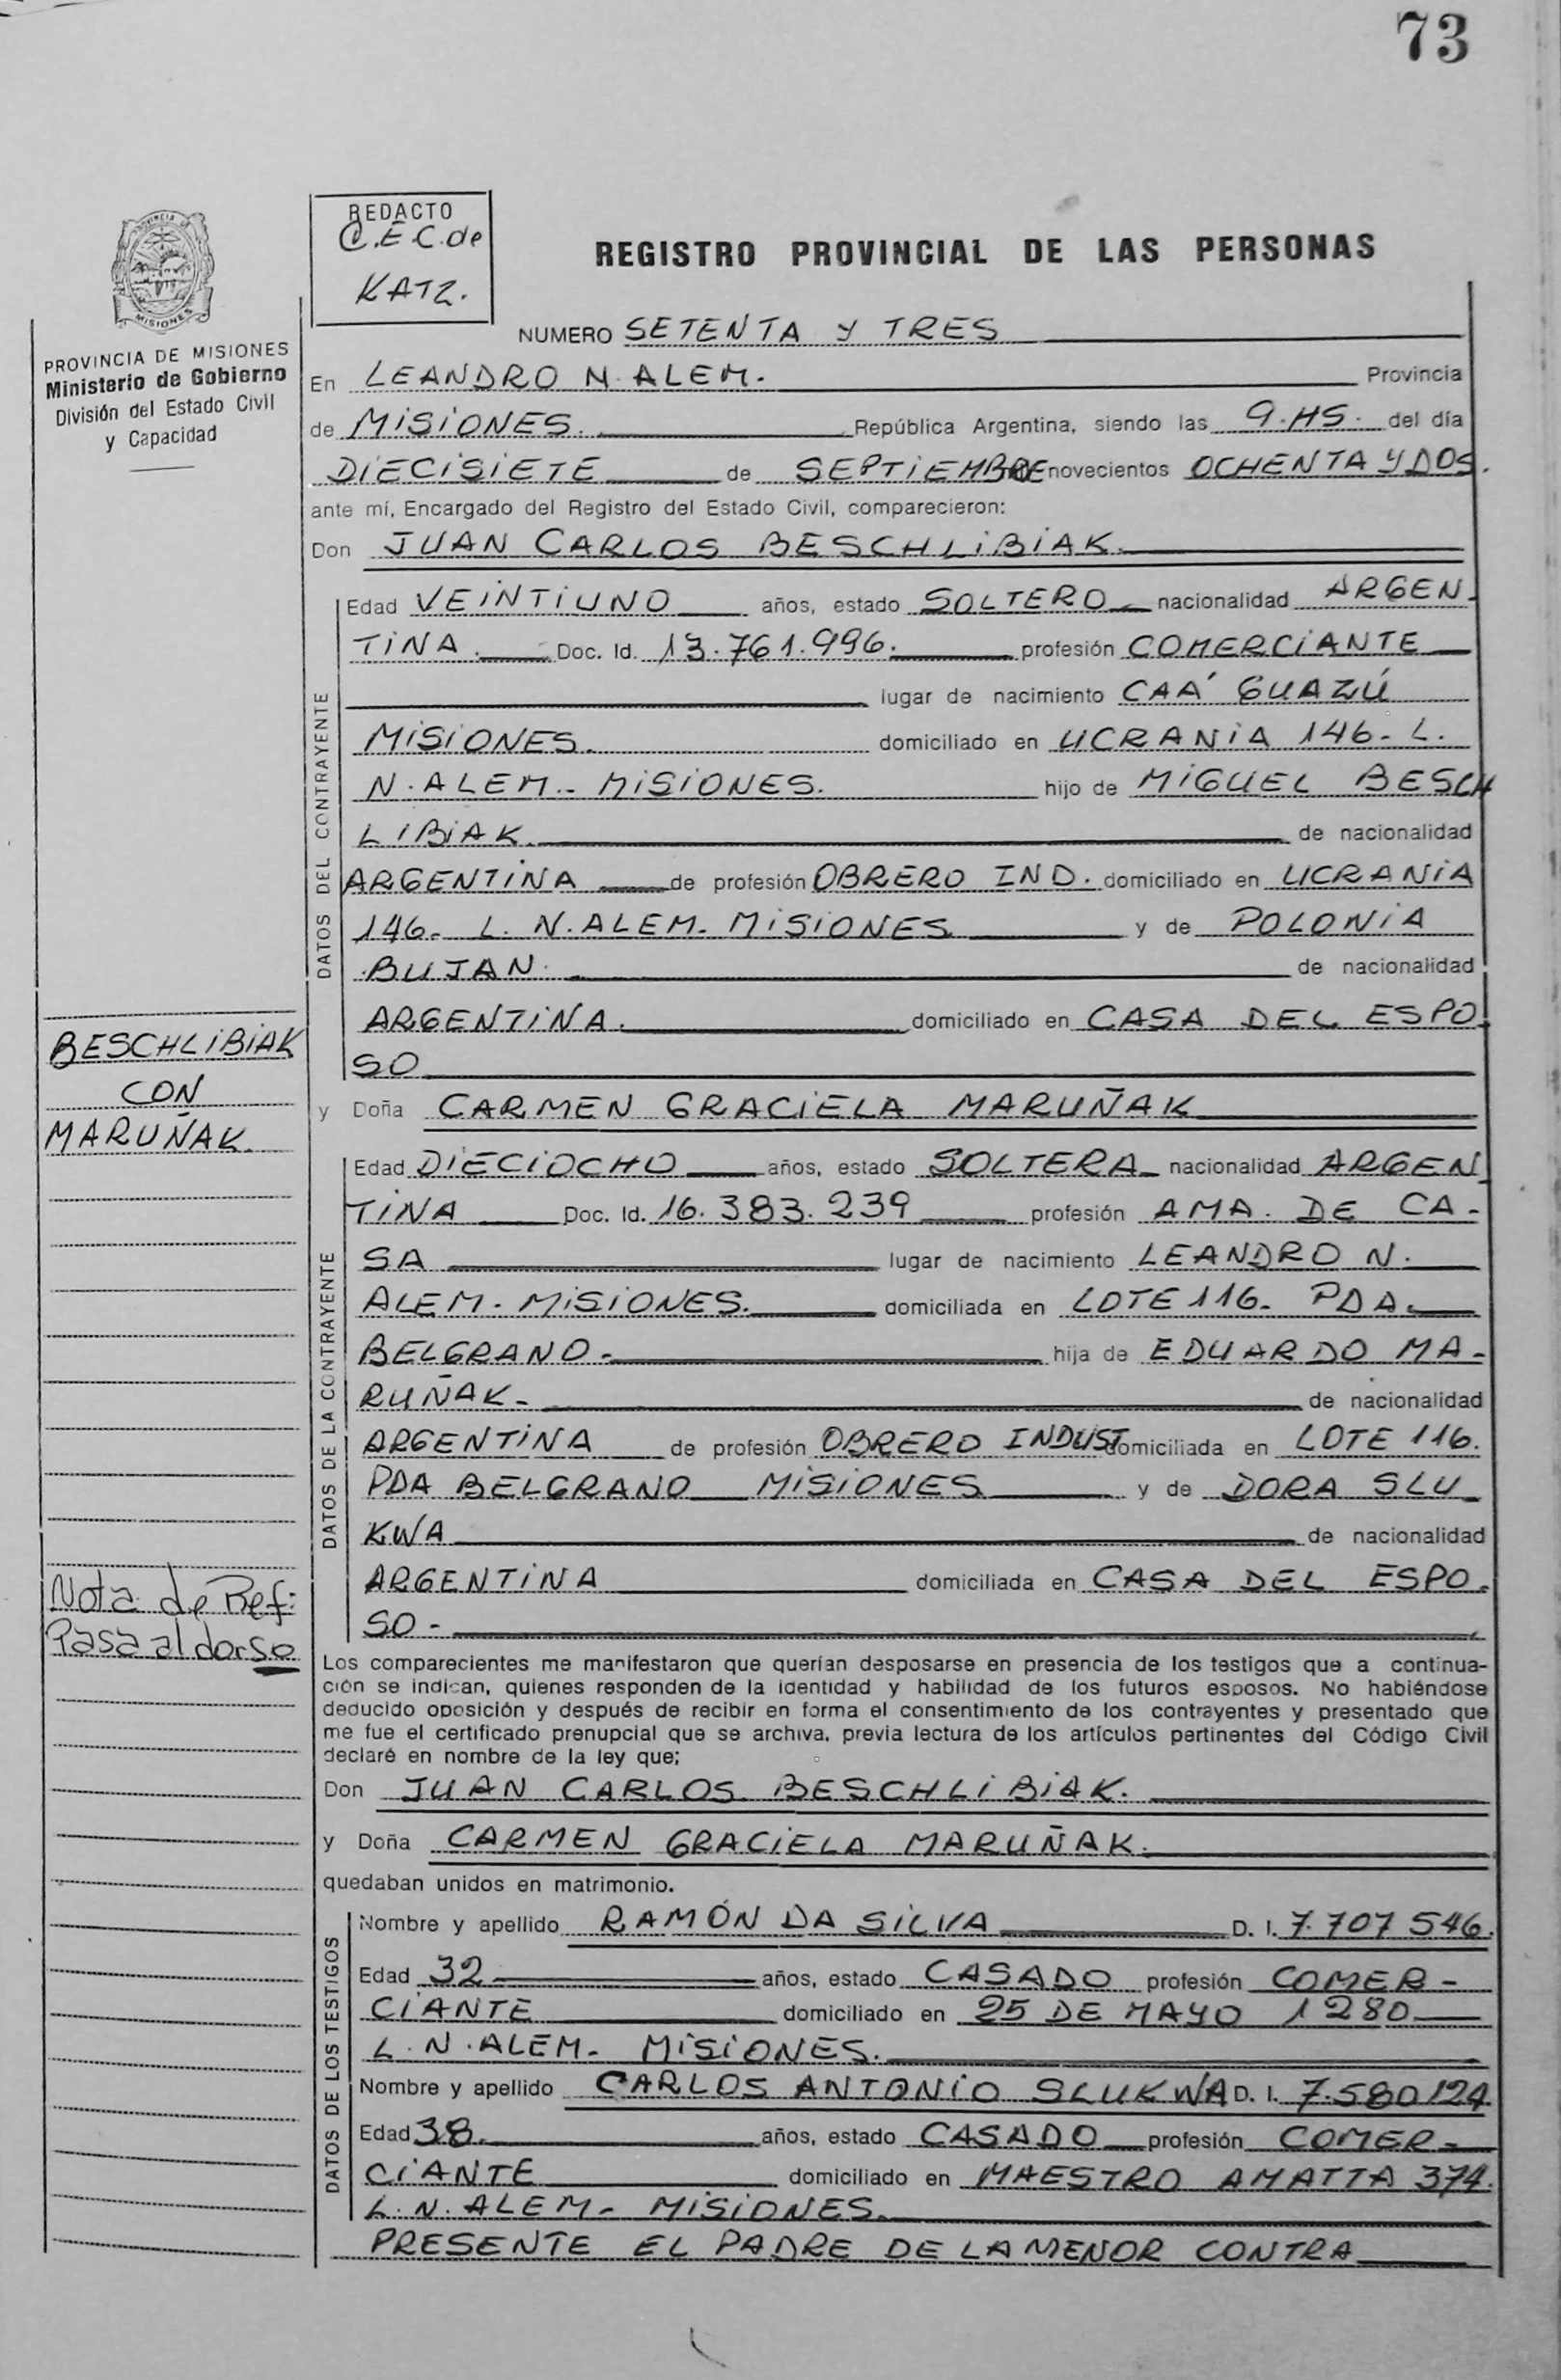 73
REDACTO
C.E.C. de
KATZ.
REGISTRO PROVINCIAL DE LAS PERSONAS
PROVINCIA DE MISIONES
Ministerio de Gobierno
División del Estado Civil
y Capacidad
NUMERO SETENTA Y TRES
En LEANDRO N. ALEM. Provincia
de MISIONES. República Argentina, siendo las 9.HS. del día
DIECISIETE de SEPTIEMBRE novecientos OCHENTA Y DOS.
ante mí, Encargado del Registro del Estado Civil, comparecieron:
Don JUAN CARLOS BESCHLIBIAK.
DATOS DEL CONTRAYENTE
Edad VEINTIUNO años, estado SOLTERO nacionalidad ARGEN-
TINA. Doc. Id. 13.761.996. profesión COMERCIANTE
lugar de nacimiento CAÁ GUAZÚ
MISIONES. domiciliado en UCRANIA 146- L.
N. ALEM.- MISIONES. hijo de MIGUEL BESCH
LIBIAK. de nacionalidad
ARGENTINA de profesión OBRERO IND. domiciliado en UCRANIA
146- L. N. ALEM- MISIONES y de POLONIA
BUJAN. de nacionalidad
ARGENTINA. domiciliado en CASA DEL ESPO-
SO
BESCHLIBIAK
CON
MARUÑAK.
y Doña CARMEN GRACIELA MARUÑAK
DATOS DE LA CONTRAYENTE
Edad DIECIOCHO años, estado SOLTERA nacionalidad ARGEN
TINA Doc. Id. 16.383.239 profesión AMA. DE CA-
SA lugar de nacimiento LEANDRO N.
ALEM- MISIONES. domiciliada en LOTE 116- PDA.
BELGRANO- hija de EDUARDO MA-
RUÑAK- de nacionalidad
ARGENTINA de profesión OBRERO INDUST domiciliada en LOTE 116.
PDA BELGRANO MISIONES y de DORA SLU
KWA de nacionalidad
ARGENTINA domiciliada en CASA DEL ESPO-
SO-
Nota de Ref:
Pasa al dorso
Los comparecientes me manifestaron que querían desposarse en presencia de los testigos que a continua-
ción se indican, quienes responden de la identidad y habilidad de los futuros esposos. No habiéndose
deducido oposición y después de recibir en forma el consentimiento de los contrayentes y presentado que
me fue el certificado prenupcial que se archiva, previa lectura de los artículos pertinentes del Código Civil
declaré en nombre de la ley que;
Don JUAN CARLOS BESCHLIBIAK.
y Doña CARMEN GRACIELA MARUÑAK.
quedaban unidos en matrimonio.
DATOS DE LOS TESTIGOS
Nombre y apellido RAMÓN DA SILVA D. I. 7.707 546.
Edad 32 años, estado CASADO profesión COMER-
CIANTE domiciliado en 25 DE MAYO 1280
L. N. ALEM- MISIONES.
Nombre y apellido CARLOS ANTONIO SLUKWA D. I. 7.580124
Edad 38. años, estado CASADO profesión COMER-
CIANTE domiciliado en MAESTRO AMATTA 374.
L. N. ALEM- MISIONES.
PRESENTE EL PADRE DE LA MENOR CONTRA